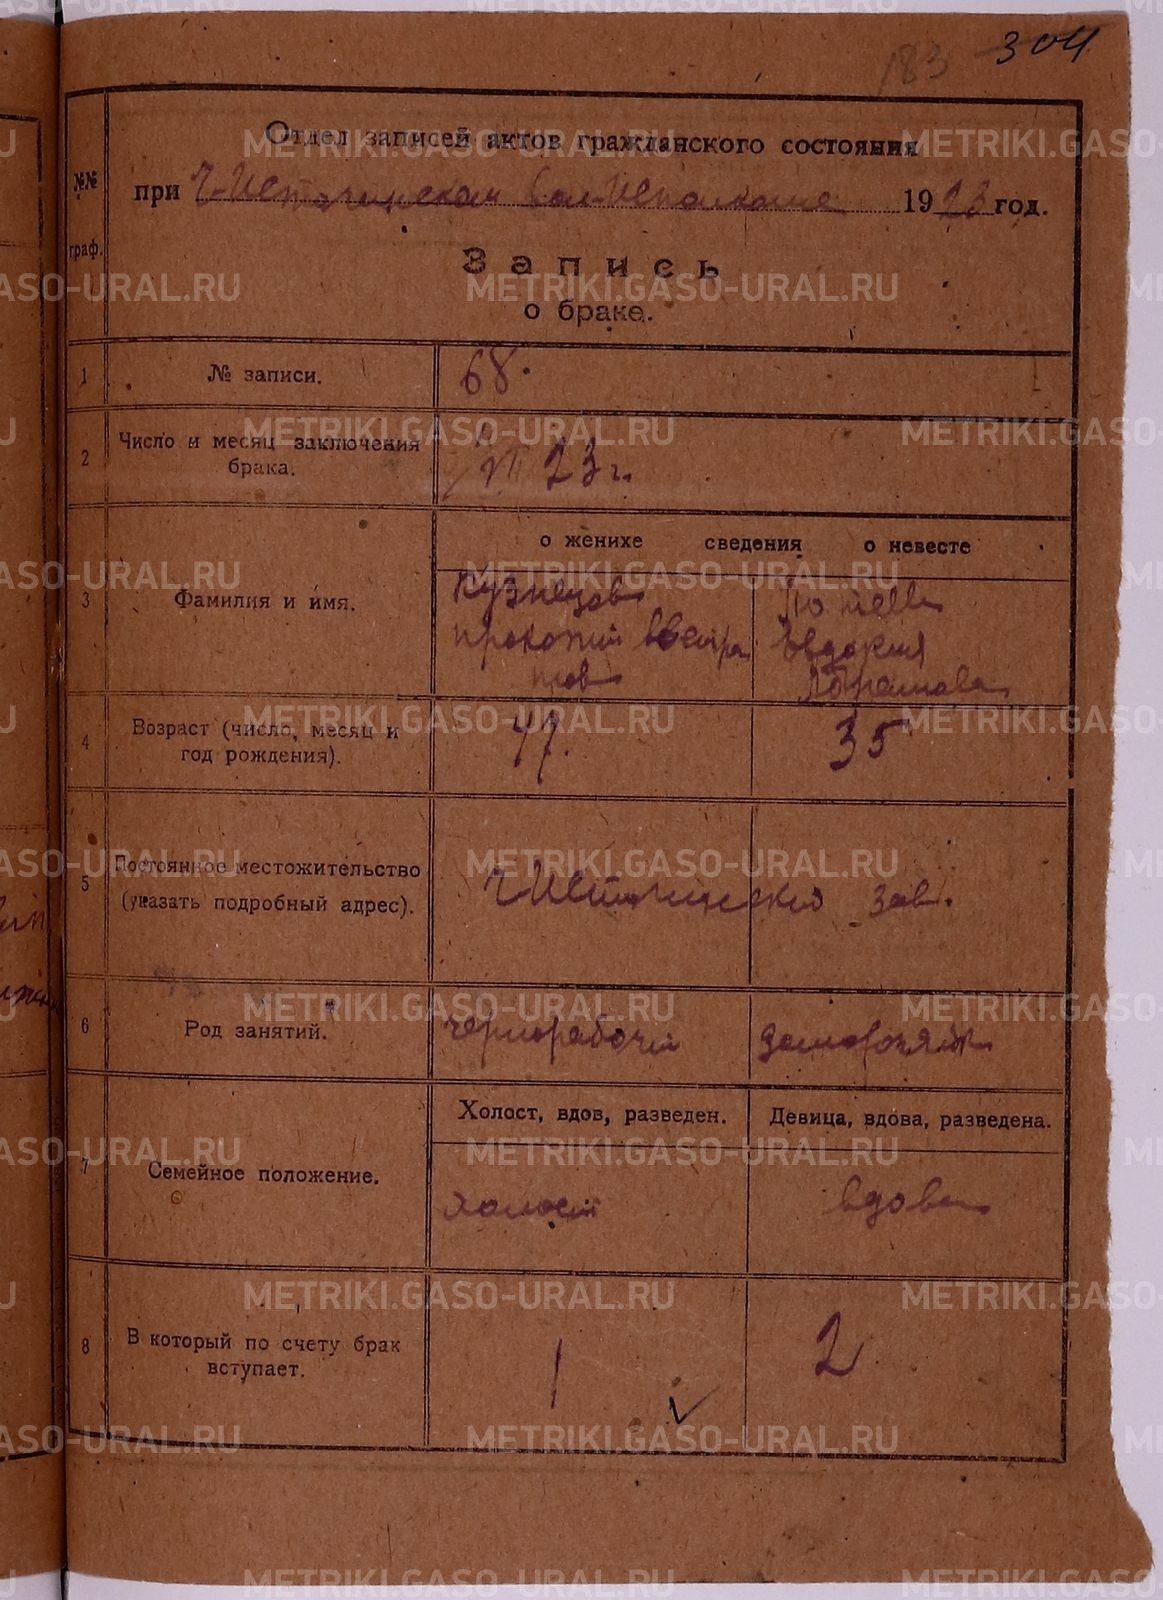 183 304
Отдел записей актов гражданского состояния
№№
граф.
при Ч-Источинском вол-Исполкоме 1923 год.
Запись
о браке.
1 № записи. 68.
2 Число и месяц заключения
брака.
VII 23 г.
о женихе сведения о невесте
3 Фамилия и имя.
Кузнецов
Прокопий
Евдокия
4 Возраст (число, месяц и
год рождения).
47. 35
5 Постоянное местожительство
(указать подробный адрес).
зав.
6 Род занятий.
чернорабочий
7 Семейное положение.
Холост, вдов, разведен. Девица, вдова, разведена.
холост вдова
8 В который по счету брак
вступает.
1 2
METRIKI.GASO-URAL.RU